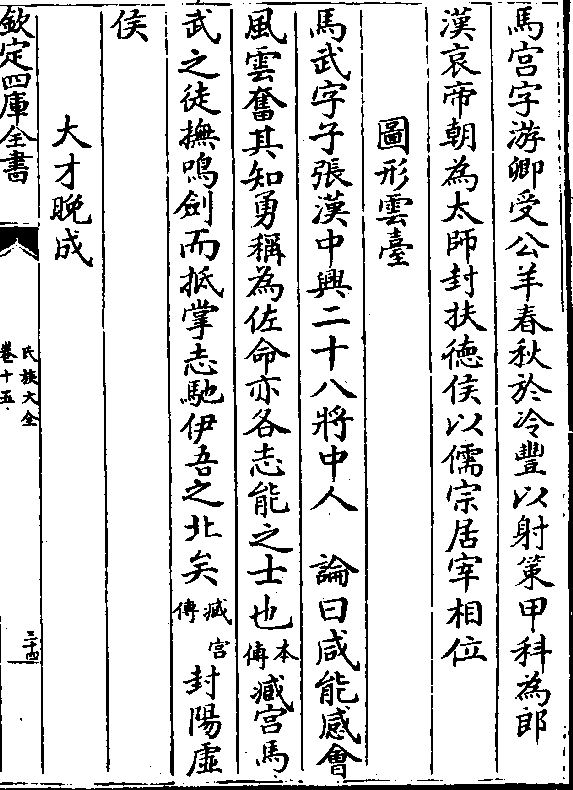 馬宫字游卿受公羊春秋於冷豐以射策甲科為郎
漢哀帝朝為太師封扶德侯以儒宗居宰相位
圖形雲臺
馬武字子張漢中興二十八將中人　論曰咸能感會
風雲奮其知勇稱為佐命亦各志能之士也本傳臧宫馬
武之徒撫鳴劍而抵掌志馳伊吾之北矣臧宫傳封陽虛
侯
大才晚成
欽定四庫全書
氏族大全
卷十五
三十四